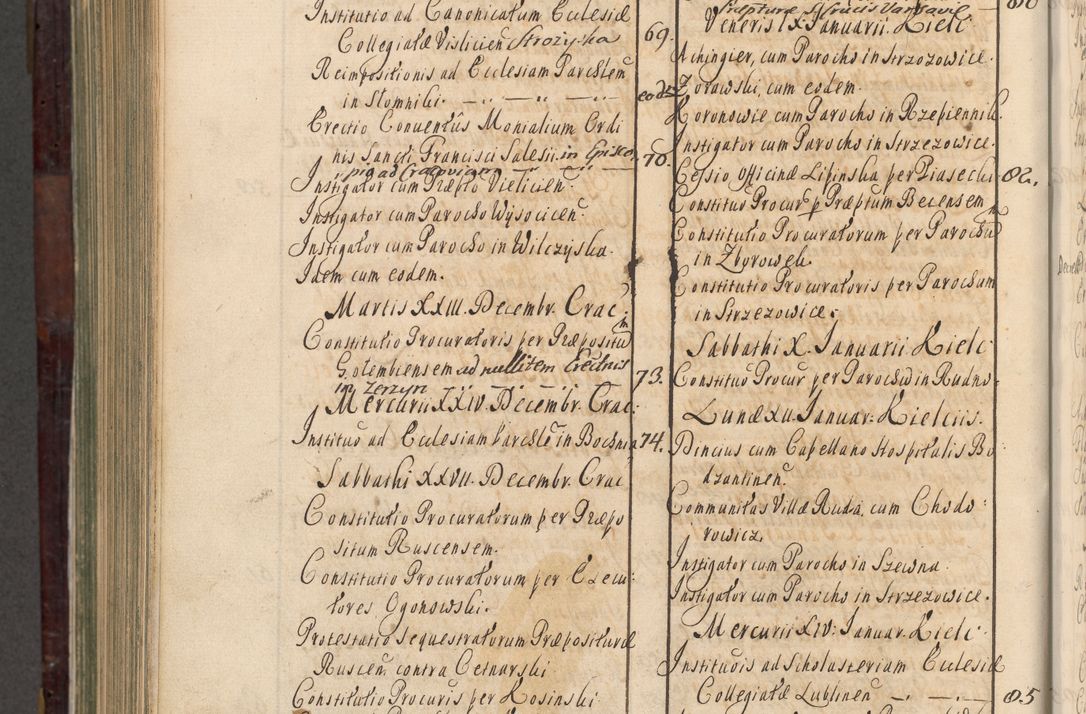 Institutio ad Canonicatum Ecclesiæ
Collegiatæ Vislicien Strozyska 69.
Reimpositionis ad Ecclesiam Parchlem
in Słomniki. eod
Erectio Conventus Monialium Ordi
nis Sancti Francisci Salesii in Episco 70.
pio ad Cracovien
Instigator cum Præpto Vielicien
Instigator cum Parocho Wysocicen
Instigator cum Parocho in Wilczyska.
Idem cum eodem.
Martis XXIII. Decembr. Crac:
Constitutio Procuratoris per Præpositum
Golembiensem ad nullitem Erectnis 73.
in Zerzyn
Mercurii XXIV. Decembr. Crac:
Institutio ad Ecclesiam parchlem in Bochnia 74.
Sabbathi XXVII. Decembr. Crac
Constitutio Procuratorum per Præpo
situm Ruscensem.
Constitutio Procuratorum per Execu:
tores Ogonowski.
Protestatio Sequestratorum Præposituræ
Ruscen contra Cetnarski
Constitutio Procuris per Kosinski
Scripturæ S. Crucis Varsaviæ 80
Veneris IX Januarii. Kielc
Achingier, cum Parocho in Strzozowice.
Zorawski, cum eodem.
Koronowie cum Parocho in Rzepiennik.
Instigator cum Parocho in Strzezowice.
Cessio Officinæ Lipinska per Piasecki 82.
Constituo Procur p Præptum Becensem
Constitutio Procuratorum per Parochum
in Zborowek
Constitutio Procuratoris per Parochum
in Strzezowice.
Sabbathi X. Januarii. Kielc
Constituo Procur per Parochum in Rudno.
Lunæ XII. Januar: Kielciis.
Dincius cum Capellano Hospitalis Bo
dzantinen
Communitas Villæ Ruda, cum Chodo:
rowicz.
Instigator cum Parocho in Szewna.
Instigator cum Parocho in Strzezowice.
Mercurii XIV: Januar. Kielc.
Institutois ad Scholasteriam Ecclesiæ
Collegiatæ Lublinen 85